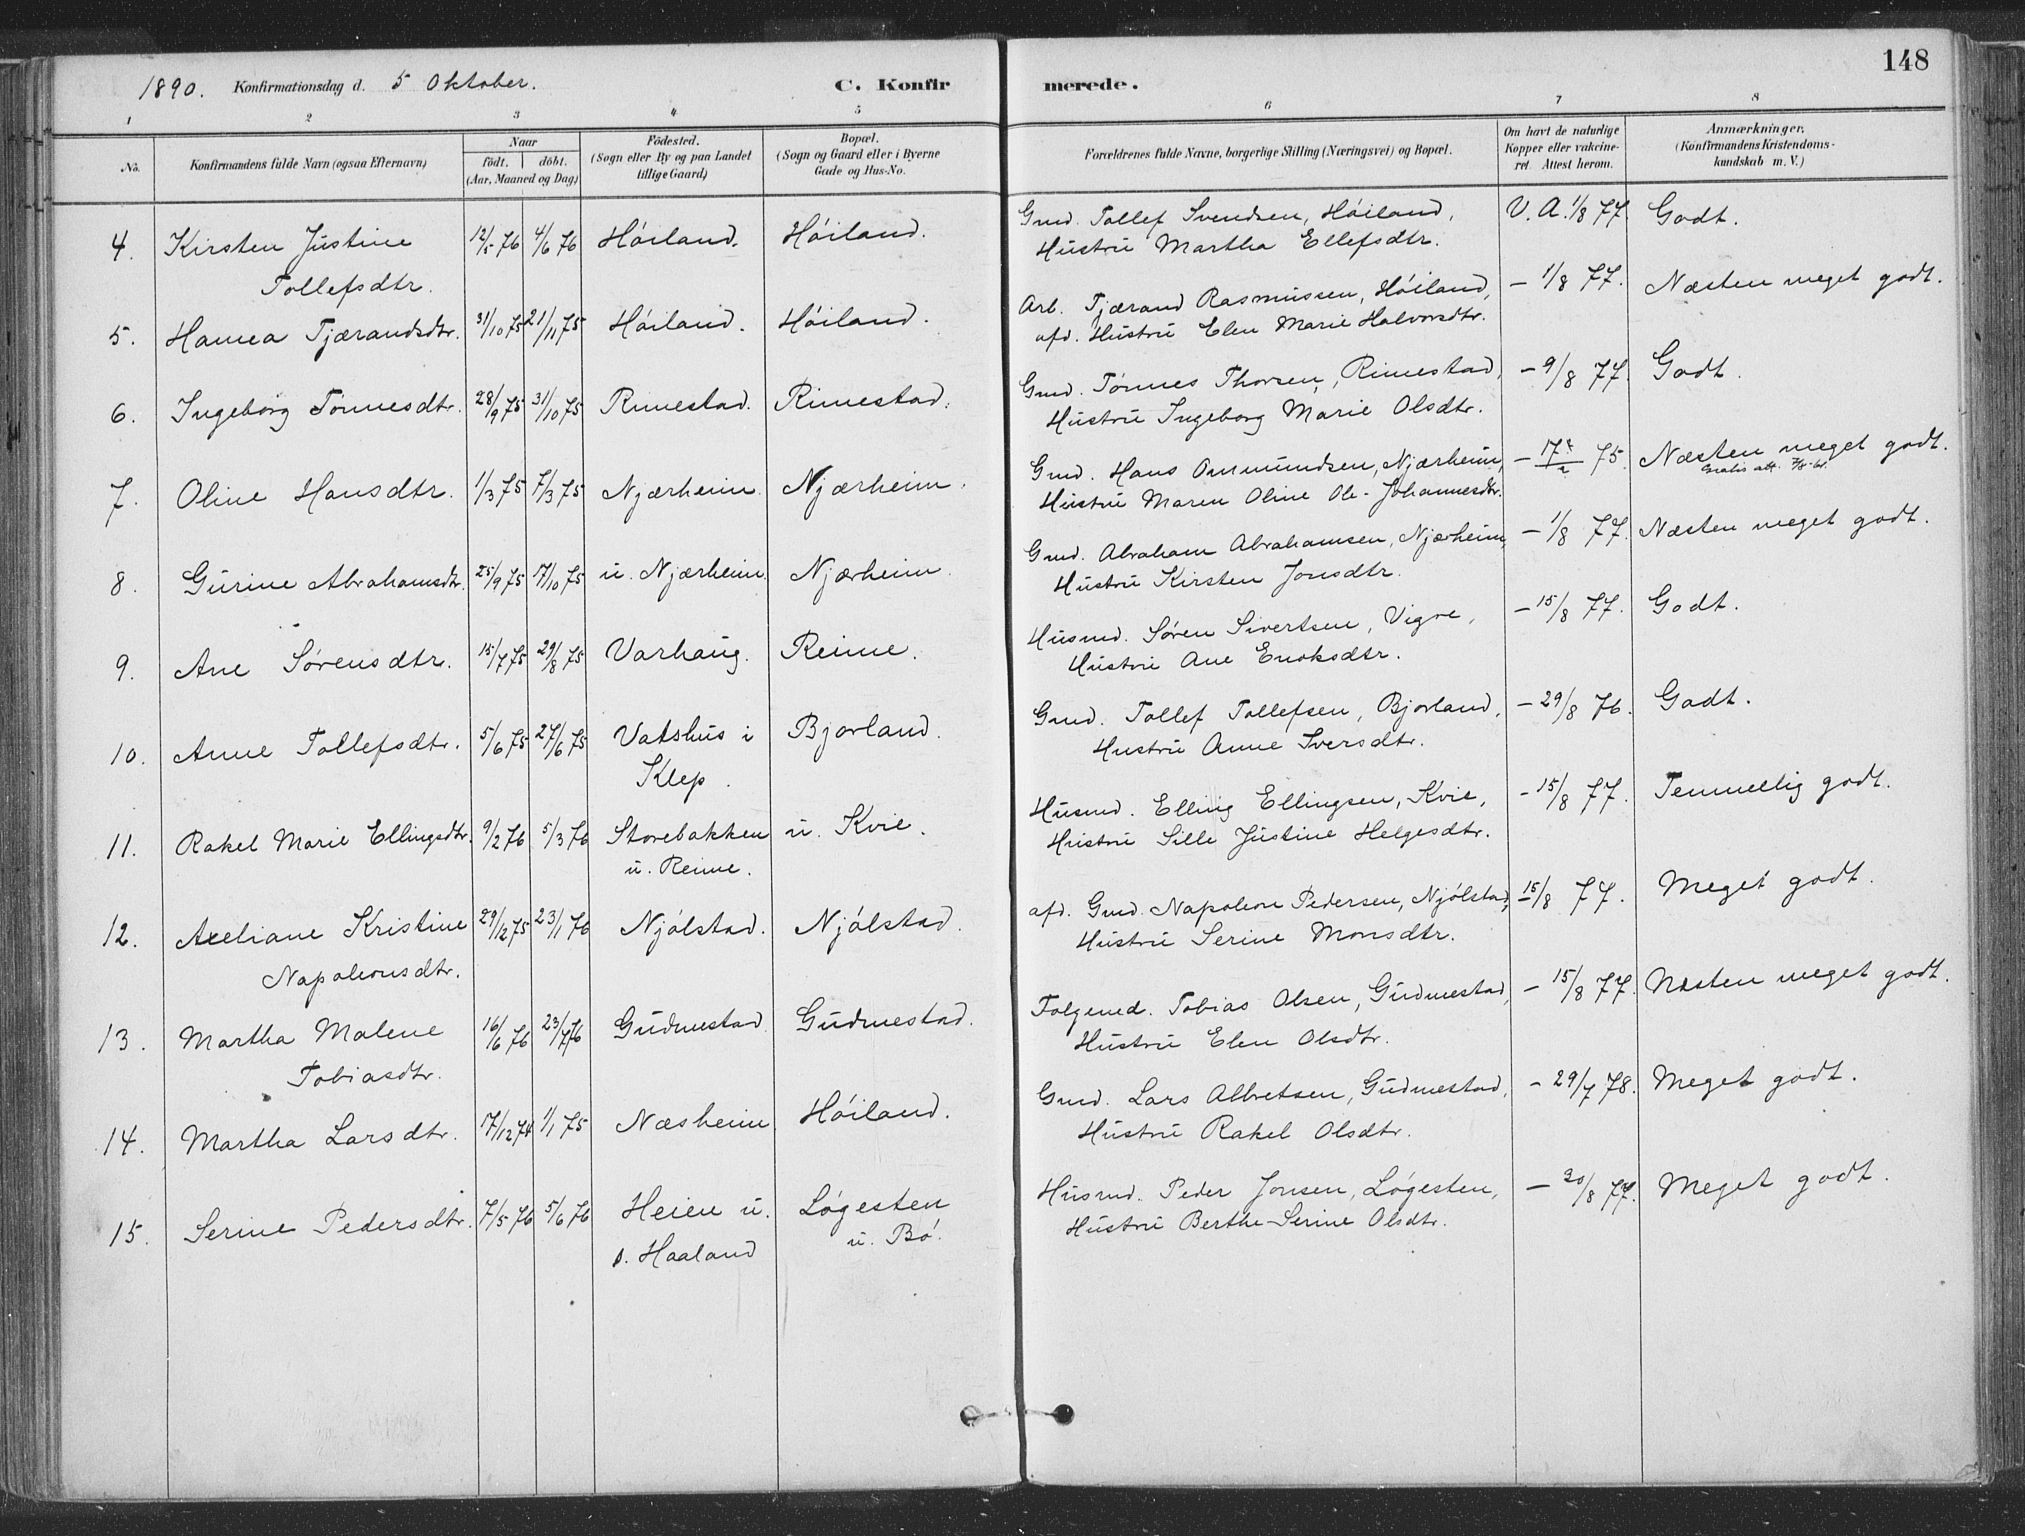 1890. Konfirmationsdag d. 5 Oktober. C. Konfirmerede. 148
1 2 3 4 5 6 7 8
No. Konfirmandens fulde Navn (ogsaa Efternavn) Naar født. døbt. (Aar, Maaned og Dag) Fødested. (Sogn eller By og paa Landet tillige Gaard) Bopæl. (Sogn og Gaard eller i Byerne Gade og Hus-No. Forældrenes fulde Navne, borgerlige Stilling (Næringsvei) og Bopæl. Om havt de naturlige Kopper eller vakcineret. Attest herom. Anmærkninger, (Konfirmandens Kristendomskundskab m. V.)
4. Kirsten Justine Tollefsdtr. 12/5 76 4/6 76 Høiland. Høiland. Gmd. Tollef Svendsen, Høiland, Hustru Martha Ellefsdtr. V. A. 1/8 77 Godt.
5. Hanna Tjærandsdtr. 31/10 75 21/11 75 Høiland. Høiland. Arb. Tjærand Rasmussen, Høiland, afd. Hustru Elen Marie Halvorsdtr. – 1/8 77. Næsten meget godt.
6. Ingeborg Tønnesdtr. 28/9 75 31/10 75 Rimestad. Rimestad. Gmd. Tønnes Thorsen, Rimestad, Hustru Ingeborg Marie Olsdtr. – 9/8 77. Godt.
7. Oline Hansdtr. 1/3 75 7/3 75 Njærheim. Njærheim. Gmd. Hans Ommundsen, Njærheim, Hustru Maren Oline Ole-Johannesdtr. – 75. Næsten meget godt.
8. Gurine Abrahamsdtr. 25/9 75 17/10 75 u. Njærheim. Njærheim. Gmd. Abraham Abrahamsen, Njærheim, Hustru Kirsten Jonsdtr. – 1/8 77. Næsten meget godt.
9. Ane Sørensdtr. 15/7 75 29/8 75 Varhaug. Reime. Husmd. Søren Sivertsen, Vigre, Hustru Ane Enoksdtr. – 15/8 77. Godt.
10. Anne Tollefsdtr. 5/6 75 27/6 75 Vatshus i Klep. Bjorland. Gmd. Tollef Tollefsen, Bjorland, Hustru Anne Iversdtr. – 29/8 76. Godt.
11. Rakel Marie Ellingsdtr. 9/2 76 5/3 76 Storebakken u. Reime. u. Kvie. Husmd. Elling Ellingsen, Kvie, Hustru Sille Justine Helgesdtr. – 15/8 77. Temmelig godt.
12. Axeliane Kristine Napoleonsdtr. 29/12 75 23/1 76 Njølstad. Njølstad. afd. Gmd. Napoleon Pedersen, Njølstad, Hustru Serine Monsdtr. – 15/8 77. Meget godt.
13. Martha Malene Tobiasdtr. 16/6 76 23/7 76 Gudmestad Gudmestad. Folgemd. Tobias Olsen, Gudmestad, Hustru Elen Olsdtr. – 15/8 77. Næsten meget godt.
14. Martha Larsdtr. 17/12 74 1/1 75 Næsheim Høiland. Gmd. Lars Albretsen, Gudmestad, Hustru Rakel Olsdtr. – 29/7 78. Meget godt.
15. Serine Pedersdtr. 7/5 76 5/6 76 Heien u. s. Haaland Løgesten u. Bø. Husmd. Peder Jonsen, Løgesten, Hustru Berthe-Serine Olsdtr. – 30/8 77. Meget godt.